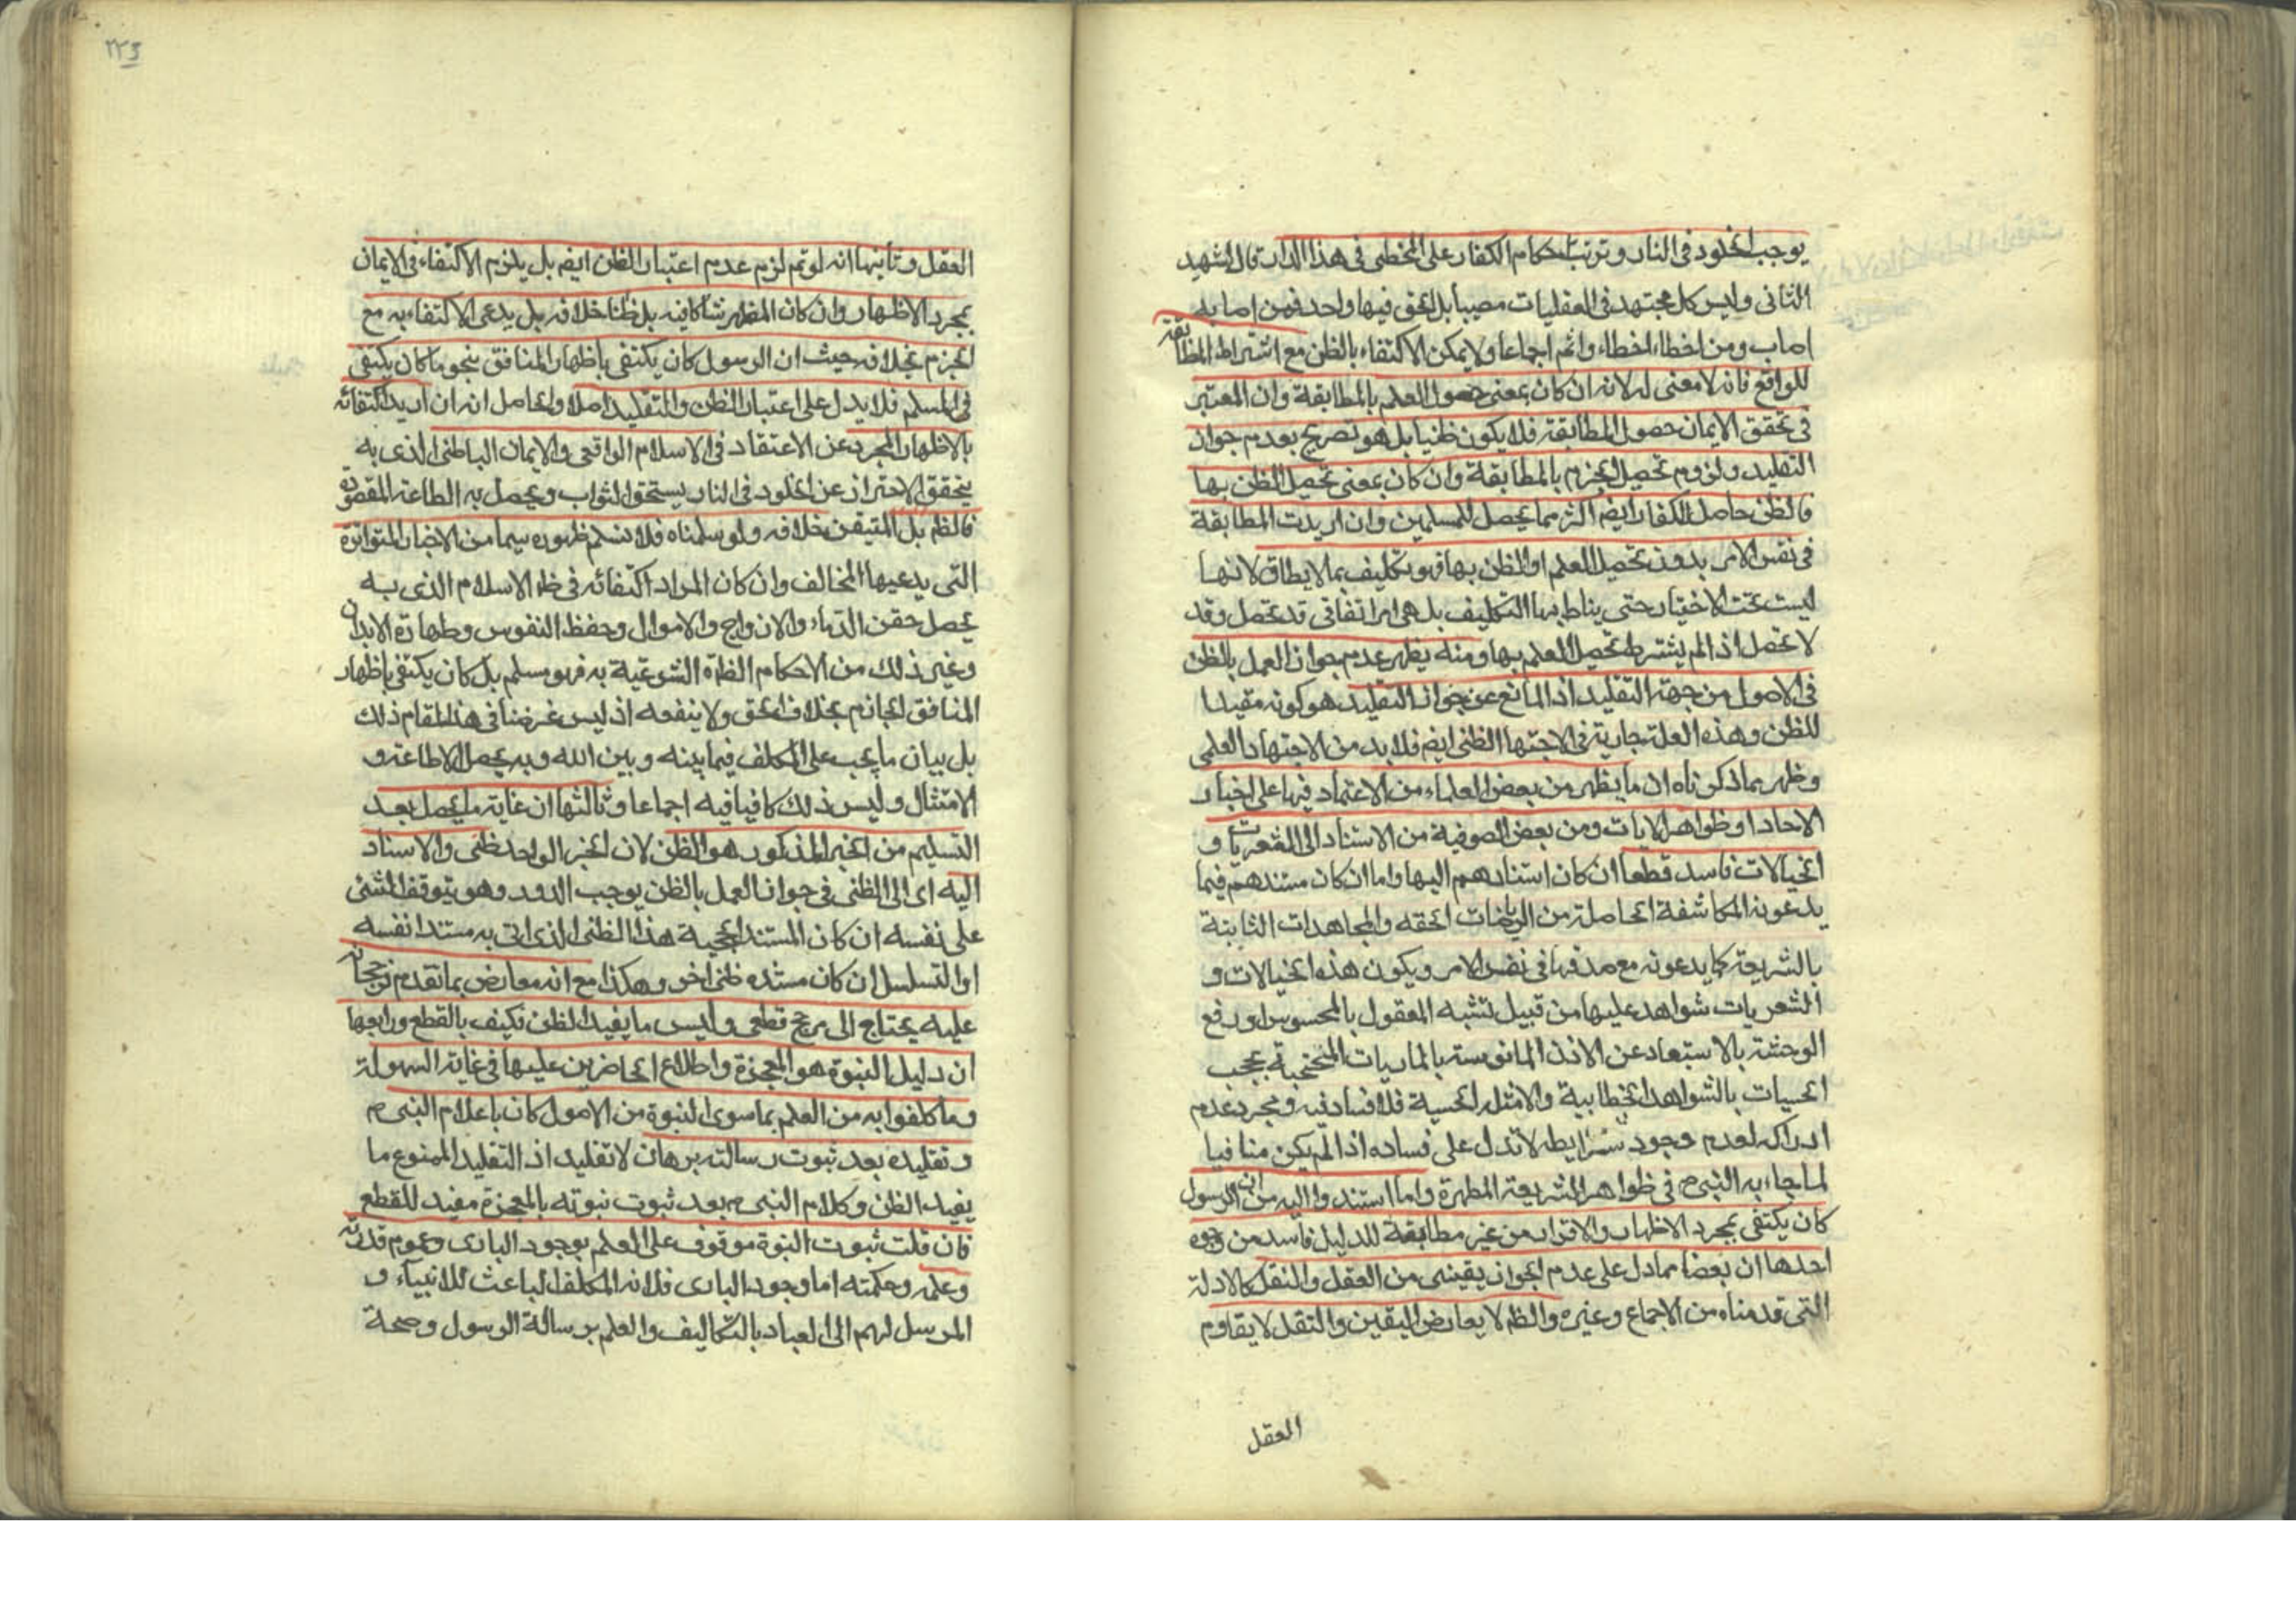 يوجب الخلود فى النار وترتب احكام الكفار على المخطى فى هذا الدار قال الشهيد
الثانى وليس كل مجتهد فى العقليات مصيبا بل الحق فيها واحد فمن اصابه
اصاب ومن اخطاء اخطاء واثم اجماعا ولا يمكن الاكتفاء بالظن مع اشتراط المطابقة
للواقع فانه لا معنى له لانه ان كان بمعنى حصول العلم بالمطابقة وان المعتبر
فى تحقق الايمان حصول المطابقة فلا يكون ظنيا بل هو تصريح بعدم جواز
التقليد ولزوم تحصيل الجزم بالمطابقة وان كان بمعنى تحصيل الظن بها
فالظن حاصل للكفار ايضم اكثر مما يحصل للمسلمين وان اريدت المطابقة
فى نفس الامر بدون تحصيل العلم او الظن بها فهو تكليف بما لا يطاق لانها
ليست تحت الاختيار حتى يناط بها التكليف بل هى امر اتفاقى قد تحصل وقد
لا تحصل اذ الم يشترط تحصيل العلم بها ومنه يظهر عدم جواز العمل بالظن
فى الاصول من جهة التقليد اذ المانع عن جواز التقليد هو كونه مقيدا
للظن وهذه العلة جارية فى الاجتها الظنى ايضم فلا بد من الاجتهاد العلمى
وظهر بما ذكرناه ان ما يظهر من بعض العلماء من الاعتماد فيها على اخبار
الاحاد او ظواهر الايات ومن بعض الصوفية من الاستناد الى الشعريات و
الخيالات فاسد قطعا ان كان استنادهم اليها واما ان كان مستندهم فيما
يدعونه المكاشفة الحاصلة من الرياضات الحقه والمجاهدات الثابتة
بالشريعة كما يدعونه مع صدقها فى نفس الامر ويكون هذه الخيالات و
الشعريات شواهد عليها من قبيل تشبه المعقول بالمحسوس او رفع
الوحشة بالاستبعاد عن الاذن المانوسة بالماديات المحتجبة بحجب
الحسيات بالشواهد الخطابية والامثلة الحسية فلا فساد فيه ومجرد عدم
ادراكه لعدم وجود شرايطه لا تدل على فساده اذ الم يكن منافيا
لما جاء به النبى ص فى ظواهر الشريعة المطهرة واما استندوا اليه من ان الرسول
كان يكتفى بمجرد الاظهار والاقرار من غير مطابقة للدليل فاسد من وجوه
احدها ان بعضا مما دل على عدم الجواز يقينى من العقل والنقل كالادلة
التى قدمناه من الاجماع وغيره والظم لا يعارض اليقين والنقل لا يقاوم
العقل
٢٢٥
العقل وثانيها انه لو تم لزم عدم اعتبار الظن ايضم بل يلزم الاكتفاء فى الايمان
بمجرد الاظهار وان كان المظهر شاكا فيه بل ظانا خلافه بل يدعى الاكتفاء به مع
الجزم بخلافه حيث ان الرسول كان يكتفى باظهار المنافق بنحو ما كان يكتفى
فى المسلم فلا يدل على اعتبار الظن والتقليد اصلا والحاصل انه ان اريد اكتفائه
بالاظهار المجرد عن الاعتقاد فى الاسلام الواقعى والايمان الباطنى الذى به
يتحقق الاحتراز عن الخلود فى النار يستحق الثواب ويحصل به الطاعة المقصودة
فالظم بل المتيقن خلافه ولو سلمناه فلا نسلم ظهوره سيما من الاخبار المتواترة
التى يدعيها المخالف وان كان المراد اكتفائه فى ظ الاسلام الذى به
يحصل حقن الدماء والازواج والاموال وحفظ النفوس وطهارة الابدان
وغير ذلك من الاحكام الظاهرة الشرعية به فهو مسلم بل كان يكتفى باظهار
المنافق الجازم بخلاف الحق ولا ينفعه اذ ليس غرضنا فى هذا المقام ذلك
بل بيان ما يجب على المكلف فيما بينه وبين الله وبه يحصل الاطاعة و
الامتثال وليس ذلك كافيا فيه اجماعا وثالثها ان غاية ما يحصل بعد
التسليم من الخبر المذكور هو الظن لان الخبر الواحد ظنى والاستناد
اليه اى الى الظنى فى جواز العمل بالظن يوجب الدور وهو يتوقف الشئى
على نفسه ان كان المستند لحجية هذا الظنى الذى اتى به مستدا نفسه
او التسلسل ان كان مستنده ظنى اخر وهكذا مع انه معارض بما تقدم ترجيحانه
عليه يحتاج الى مرجح قطعى وليس ما يفيد الظن فكيف بالقطع ورابعها
ان دليل النبوة هو المعجزة واطلاع الحاضرين عليها فى غاية السهولة
وما كلفوا به من العلم بما سوى النبوة من الاصول كان باعلام النبى م
وتقليده بعد ثبوت رسالته برهان لا تقليد اذ التقليد الممنوع ما
يفيد الظن وكلام النبى م بعد ثبوت نبوته بالمعجزة مفيد للقطع
فان قلت ثبوت النبوة موقوف على العلم بوجود البارى وعموم قدرته
وعلمه وحكمته اما وجود البارى فلانه المكلف الباعث للانبيآء و
المرسل لهم الى العباد بالتكاليف والعلم برسالة الرسول وصحة